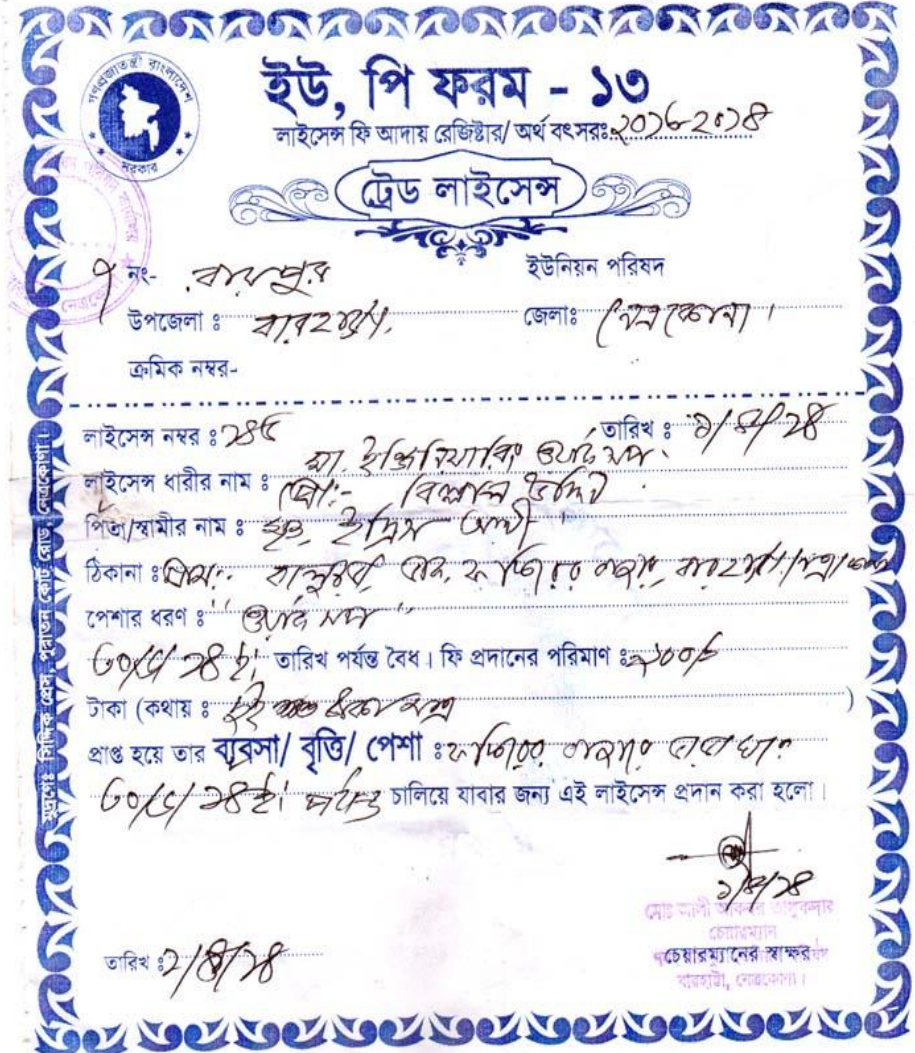 গণপ্রজাতন্ত্রী বাংলাদেশ
সরকার
ইউ, পি ফরম - ১৩
লাইসেন্স ফি আদায় রেজিষ্টার/ অর্থ বৎসরঃ ২০১৩-২০১৪
ট্রেড লাইসেন্স
নং- রায়পুর ইউনিয়ন পরিষদ
উপজেলা ঃ বারহাট্টা, জেলাঃ নেত্রকোনা।
ক্রমিক নম্বর-
লাইসেন্স নম্বর ঃ তারিখ ঃ
মা ইঞ্জিনিয়ারিং ওয়ার্কসপ
লাইসেন্স ধারীর নাম ঃ প্রোঃ- উদ্দিন
পিতা/স্বামীর নাম ঃ মৃত ইদ্রিস আলী
ঠিকানা ঃ গ্রামঃ ফকিরের বাজার, বারহাট্টা, নেত্রকোনা
পেশার ধরণ ঃ "ওয়ার্কসপ"
৩০/৬/১৪ ইং তারিখ পর্যন্ত বৈধ। ফি প্রদানের পরিমাণ ঃ ২০০/=
টাকা (কথায় ঃ দুই শত টাকা মাত্র )
প্রাপ্ত হয়ে তার ব্যবসা/ বৃত্তি/ পেশা ঃ ফকিরের বাজারে
৩০/৬/১৪ ইং পর্যন্ত চালিয়ে যাবার জন্য এই লাইসেন্স প্রদান করা হলো।
মোঃ আলী আকবর তালুকদার
চেয়ারম্যান
চেয়ারম্যানের স্বাক্ষর
বারহাট্টা, নেত্রকোণা।
তারিখ ঃ